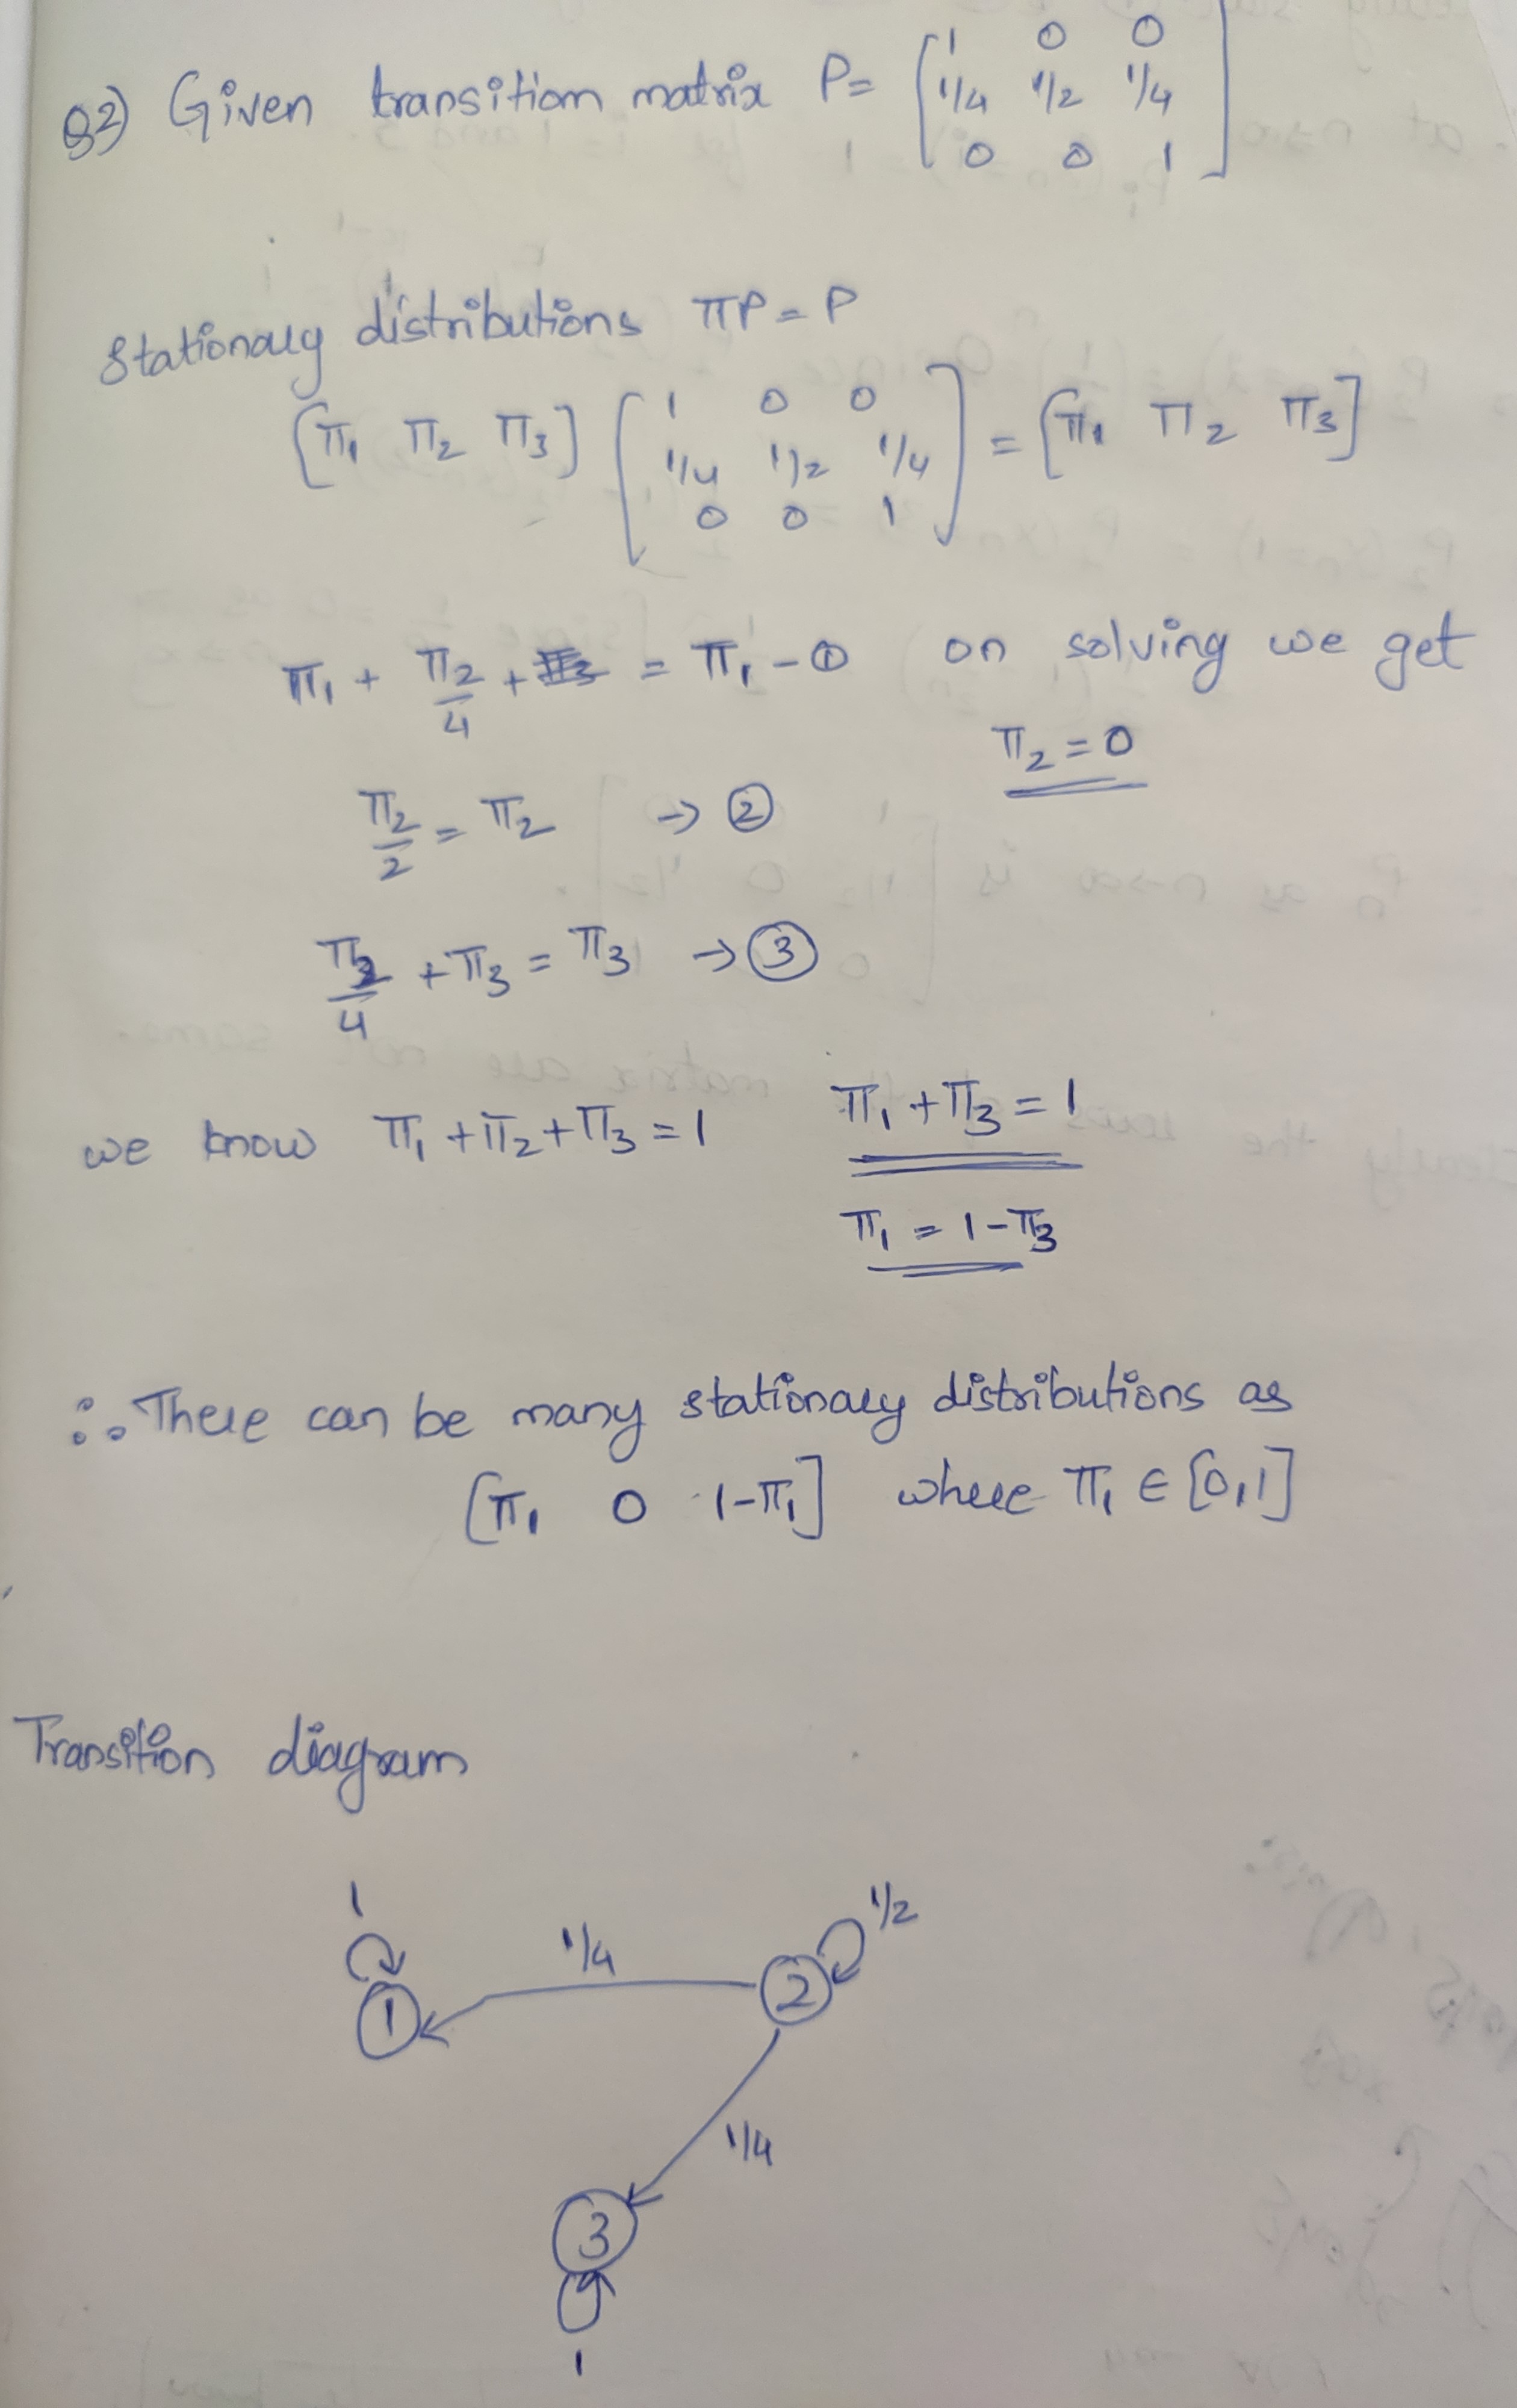 Q2) Given transition matrix P= [1 0 0
1/4 1/2 1/4
0 0 1]
Stationary distributions πP = P
[π₁ π₂ π₃] [1 0 0
1/4 1/2 1/4
0 0 1] = [π₁ π₂ π₃]
π₁ + π₂/4 + = π₁ - ① on solving we get
π₂ = 0
π₂/2 = π₂ → ②
π₂/4 + π₃ = π₃ → ③
we know π₁ + π₂ + π₃ = 1 π₁ + π₃ = 1
π₁ = 1-π₃
∴ There can be many stationary distributions as
[π₁ 0 1-π₁] where π₁ ∈ [0,1]
Transition diagram
1
1/4
1/2
1
2
1/4
3
1